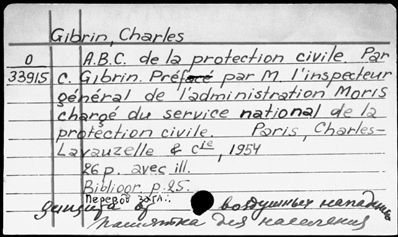 Gibrin, Charles
O A.B.C. de la protection civile. Par
33915 c. Gibrin. Préfacé par M. l'inspecteur
général de l'administration Moris
chargé du service national de la
protection civile. Paris, Charles-
Lavauzelle & Cie, 1954
26 p. avec ill.
Bibliogr. p. 25.
Перевод загл.:
воздушных нападений
памятка для населения